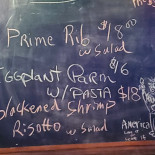 Prime Rib $18.00
w Salad
Eggplant Parm $16
w/ PASTA $18
blackened Shrimp
Risotto w Salad
AMERICA